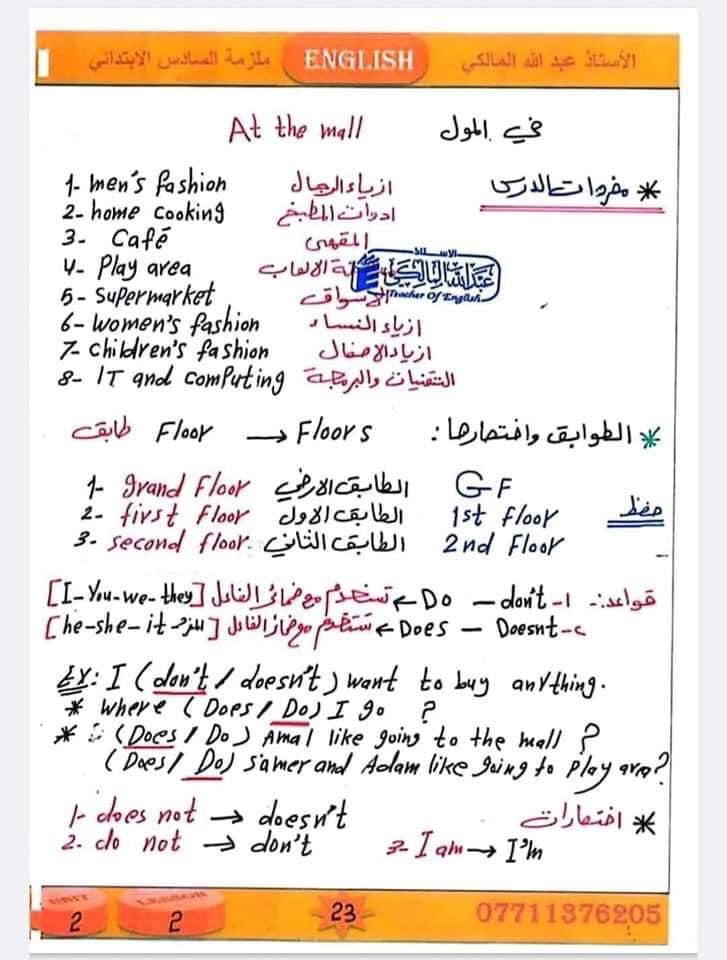 الأستاذ عبد الله المالكي ENGLISH ملزمة السادس الابتدائي
At the mall في المول
* مفردات الدرس
1- men's fashion ازياء الرجال
2- home cooking ادوات المطبخ
3- Café المقهى
4- Play area الالعاب
5- Supermarket الاسواق
6- women's fashion ازياء النساء
7- children's fashion ازياء الاطفال
8- IT and computing التقنيات والبرمجة
الاستاذ
عبد الله المالكي
Teacher Of English
* الطوابق واختصارها: Floor → Floors طابق
حفظ
1- grand Floor الطابق الارضي GF
2- first Floor الطابق الاول 1st Floor
3- second floor. الطابق الثاني 2nd Floor
قواعد:- 1- Do – don't ← تستخدم مع ضمائر الفاعل [I-You-we-they]
2- Does – Doesnt ← تستخدم مع ضمائر الفاعل [he-she-it]
Ex: I (don't / doesn't) want to buy anything.
* where (Does / Do) I go ?
* (Does / Do) Amal like going to the mall ?
(Does / Do) Samer and Adam like going to Play area?
* اختصارات
1- does not → doesn't
2. do not → don't
3- I am → I'm
UNIT 2 LESSON 2 23 07711376205